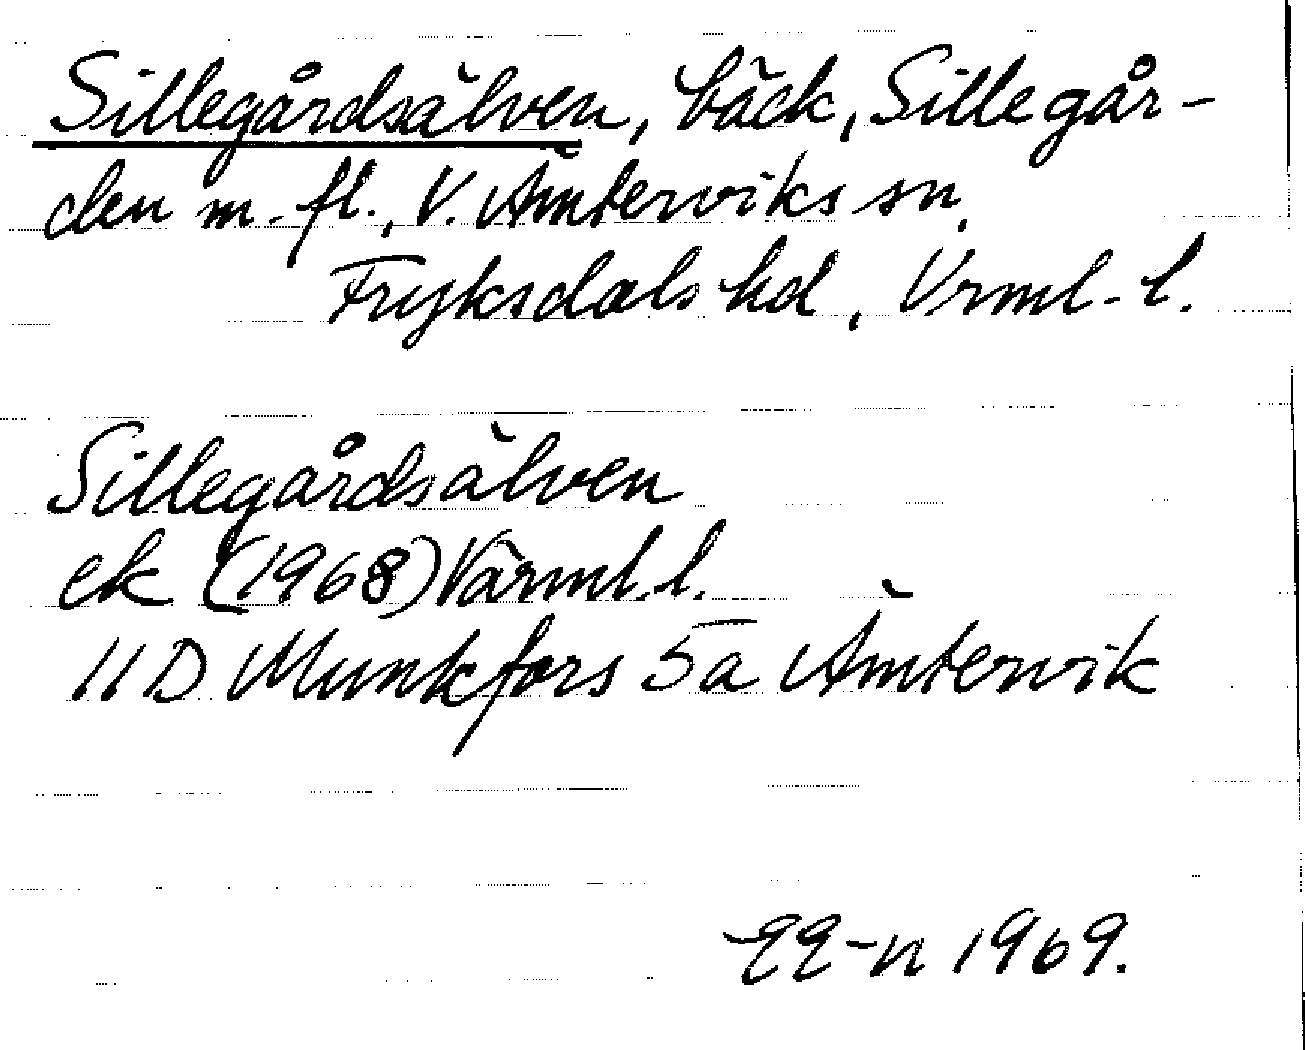 Sillegårdsälven, bäck, Sillegår-
den m. fl., V. Ämterviks sn,
Fryksdals hd, Vrml. l.
Sillegårdsälven
ek (1968) Värml. l.
11 D Munkfors 5a Ämtervik
EE-n 1969.